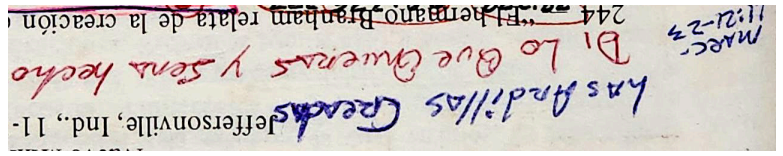 Jeffersonville, Ind., 11-
Las Ardillas Creadas
Di Lo Que Quieras y Sera hecho
Marc-
11:21-23
244 "El hermano Branham relata de la creación